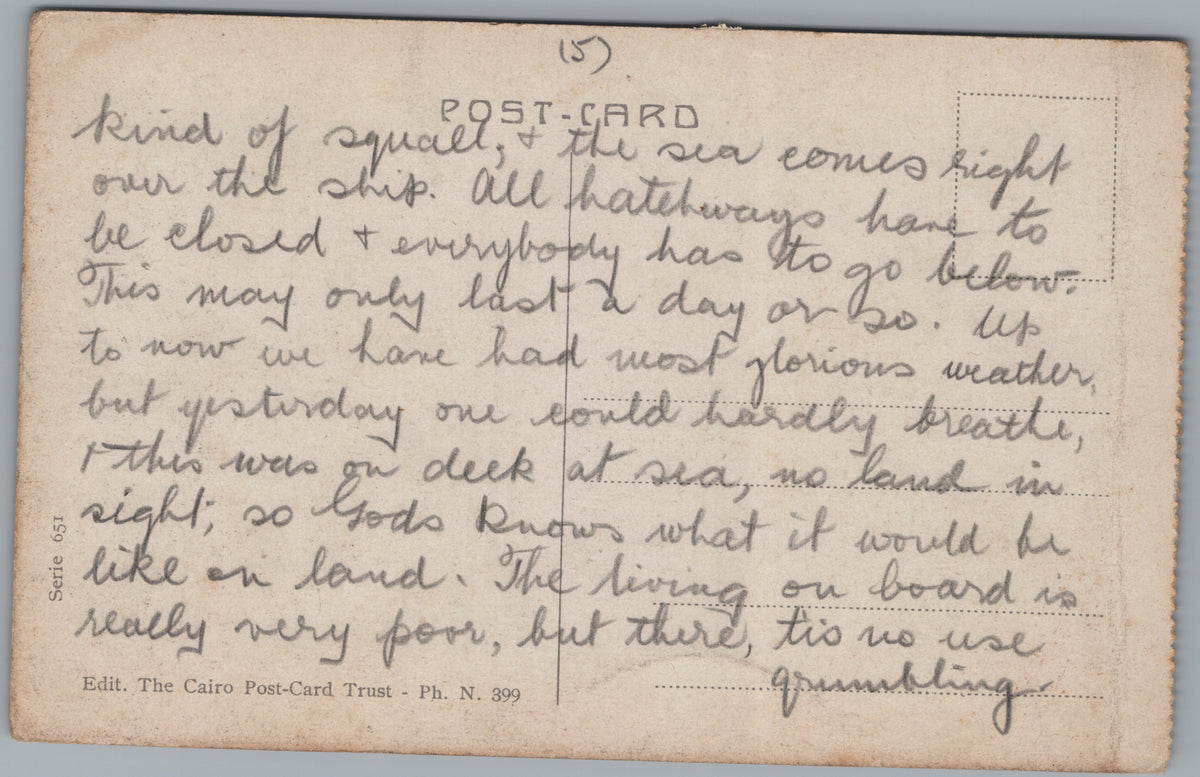 (5)
POST-CARD
kind of squall, & the sea comes right
over the ship. All hatchways have to
be closed & everybody has to go below.
This may only last a day or so. Up
to now we have had most glorious weather,
but yesterday one could hardly breathe,
& this was on deck at sea, no land in
sight; so Gods knows what it would be
like on land. The living on board is
really very poor, but there, tis no use
grumbling.
Serie 651
Edit. The Cairo Post-Card Trust - Ph. N. 399